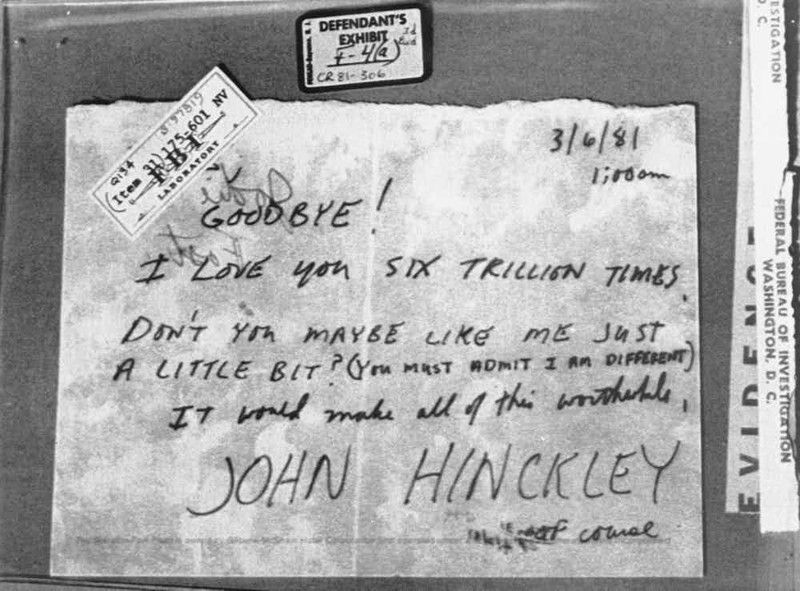 DEFENDANT'S
EXHIBIT
F-4(a)
CR 81-306
Q134
(Item 31) 175-601 NV
FBI
LABORATORY
3/6/81
1:00am
GOODBYE!
I LOVE YOU SIX TRILLION TIMES.
DON'T YOU MAYBE LIKE ME JUST
A LITTLE BIT? (YOU MUST ADMIT I AM DIFFERENT)
IT would make all of this worthwhile.
JOHN HINCKLEY
of course
EVIDENCE
FEDERAL BUREAU OF INVESTIGATION
WASHINGTON, D. C.
ESTIGATION
D. C.